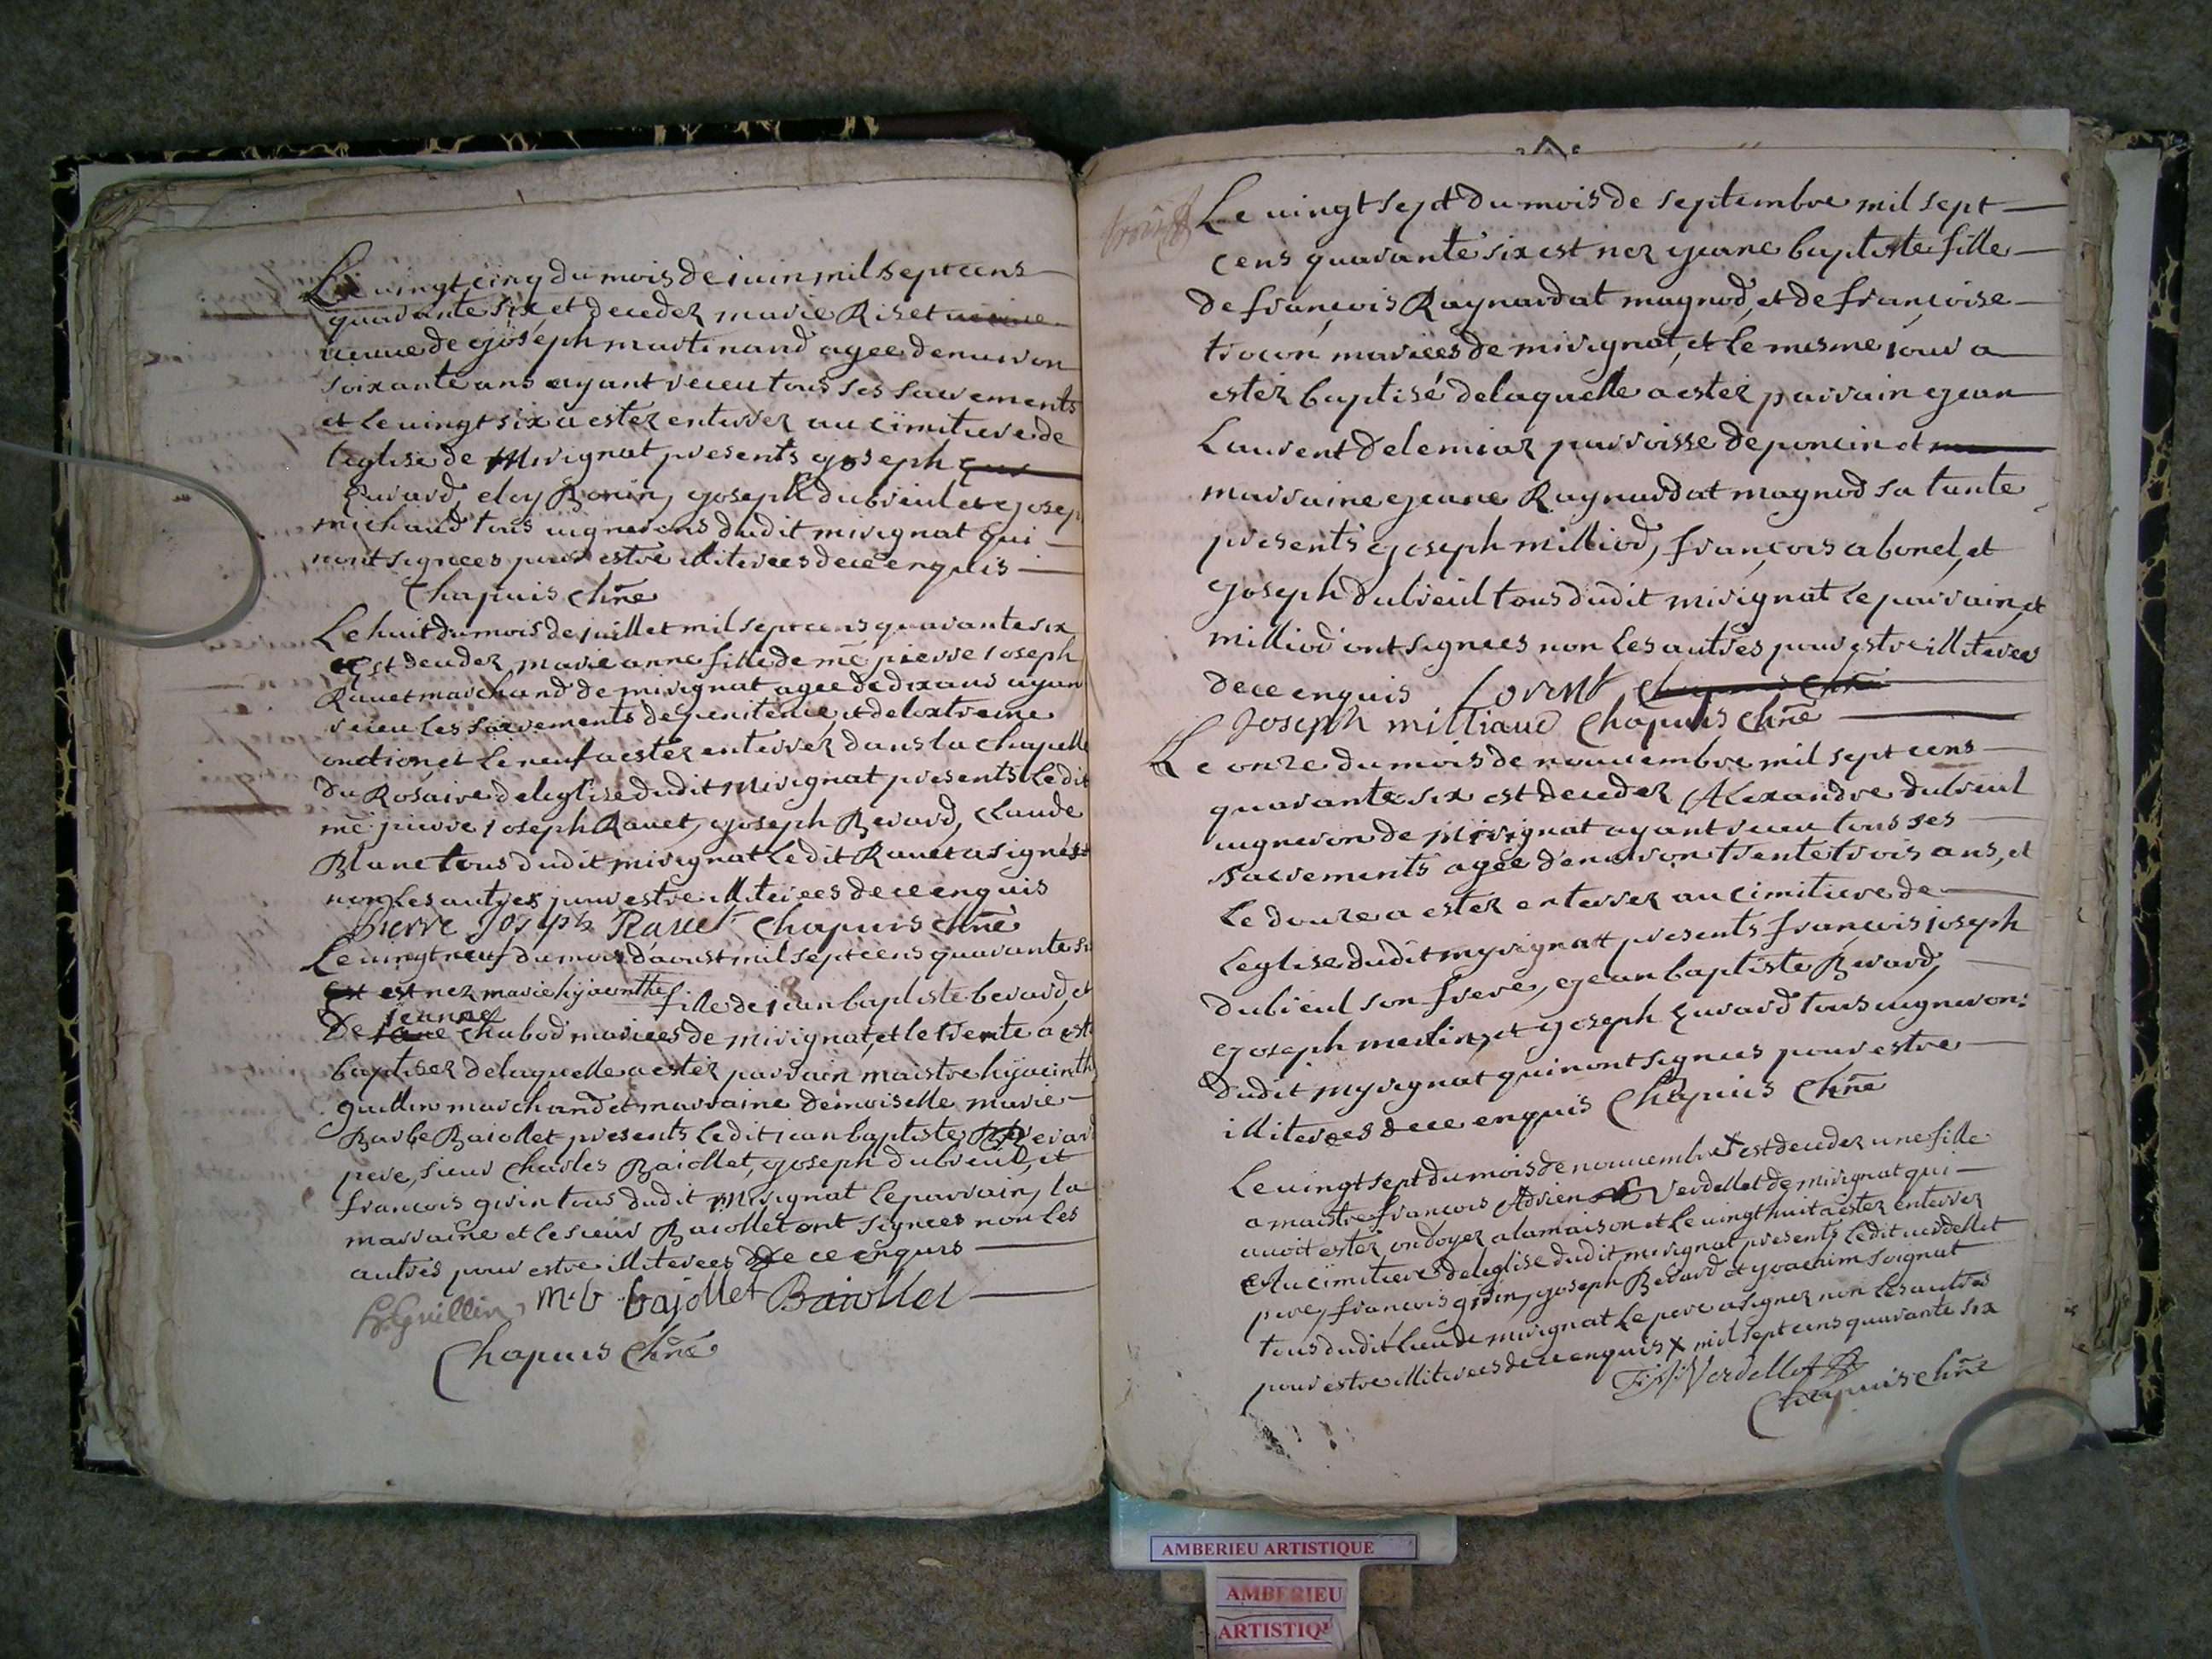 Le uingt cinq du mois de iuin mil sept cens
quarante six est deceder marie Riset
ueuue de ejoseph martinand agee denuiron
soixante ans ayant receu tous ses sacrements
et le uingt six a ester enterrer au cimitiere de
leglise de Mirignat presents ejoseph
Euvard, eloy Bonin, ejoseph dubieul et ejosep
michaud tous uignerons dudit mirignat qui
nont signees pour estre illiterees de ce enquis
Chapuis Chñe
Le huit du mois de juillet mil sept cens quarante six
est deceder marie anne fille de mé pierre joseph
Rauet marchand de mirignat agee de dix ans ayan
receu les sacrements de penitence, et de lextreme
onction et le neuf a ester enterrer dans la chapelle
du Rosaire de leglise dudit Mirignat presents Ledit
mé pierre joseph Rauet, ejoseph Berard, Claude
Blanc tous dudit mirignat Ledit Rauet a signés et
non Les autres pour estre illiterees de ce enquis
Pierre Joseph Rauet Chapuis Chñe
Le uingt neuf du mois daoust mil sept cens quarante si
est nez marie hijacinthe fille de jean baptiste berard, et
jeanne
De chabod mariees de mirignat, et le trente a est
baptiser de laquelle a ester parrain maistre hijacinth
guillin marchand et marraine demoiselle marie
Barbe Baiollet presents ledit jean baptiste Berard
pere, sieur Charles Baiollet, ejoseph dubieul, et
francois girin tous dudit Mirignat le parrain, la
marraine et le sieur Baiollet ont signees non les
autres pour estre illiterees de ce enquis
h. Guillin, m. b bajollet Baiollet
Chapuis Chñe
Le uingt sept du mois de septembre mil sept
cens quarante six est nez ejeane baptiste fille
de françois Raynardat magnod, et de françoise
trocon mariees de mirignat, et le mesme jour a
ester baptisé de laquelle a ester parrain ejean
Laurent de lemiaz parroisse de poncin et
marraine ejeane Raynardat magnod sa tante
presents ejoseph milliod, françois abonel, et
ejoseph dubieul tous dudit mirignat le parrain, et
milliod ont signees non les autres pour estre illiterees
de ce enquis Lorent
Joseph milliaud Chapuis Chñe
Le onze du mois de nouuembre mil sept cens
quarante six est deceder Alexandre dubieul
uigneron de Mirignat ayant receu tous ses
sacrements agee denuiron trente trois ans, et
Le douze a ester enterrer au cimitiere de
Leglise dudit myrignatt presents françois joseph
dubieul son frere, ejean baptiste Berard,
ejoseph merlin, et ejoseph Euvard tous uignerons
dudit myrignat qui nont signees pour estre
illiterees de ce enquis Chapuis Chñe
Le uingt sept du mois de nouuembre x est deceder une fille
a maistre françois Adrien Verdellet de mirignat qui
auoit ester ondoyer a la maison et le uingt huit a ester enterrer
Au cimitiere de leglise dudit mirignat presents ledit uerdellet
pere, francois girin, ejoseph Berard et ejoachim soignat
tous dudit lieu de mirignat le pere a signer non les autres
pour estre illiterees de ce enquis x mil sept cens quarante six
Verdellet
Chapuis Chñe
AMBERIEU ARTISTIQUE
AMBERIEU
ARTISTIQU